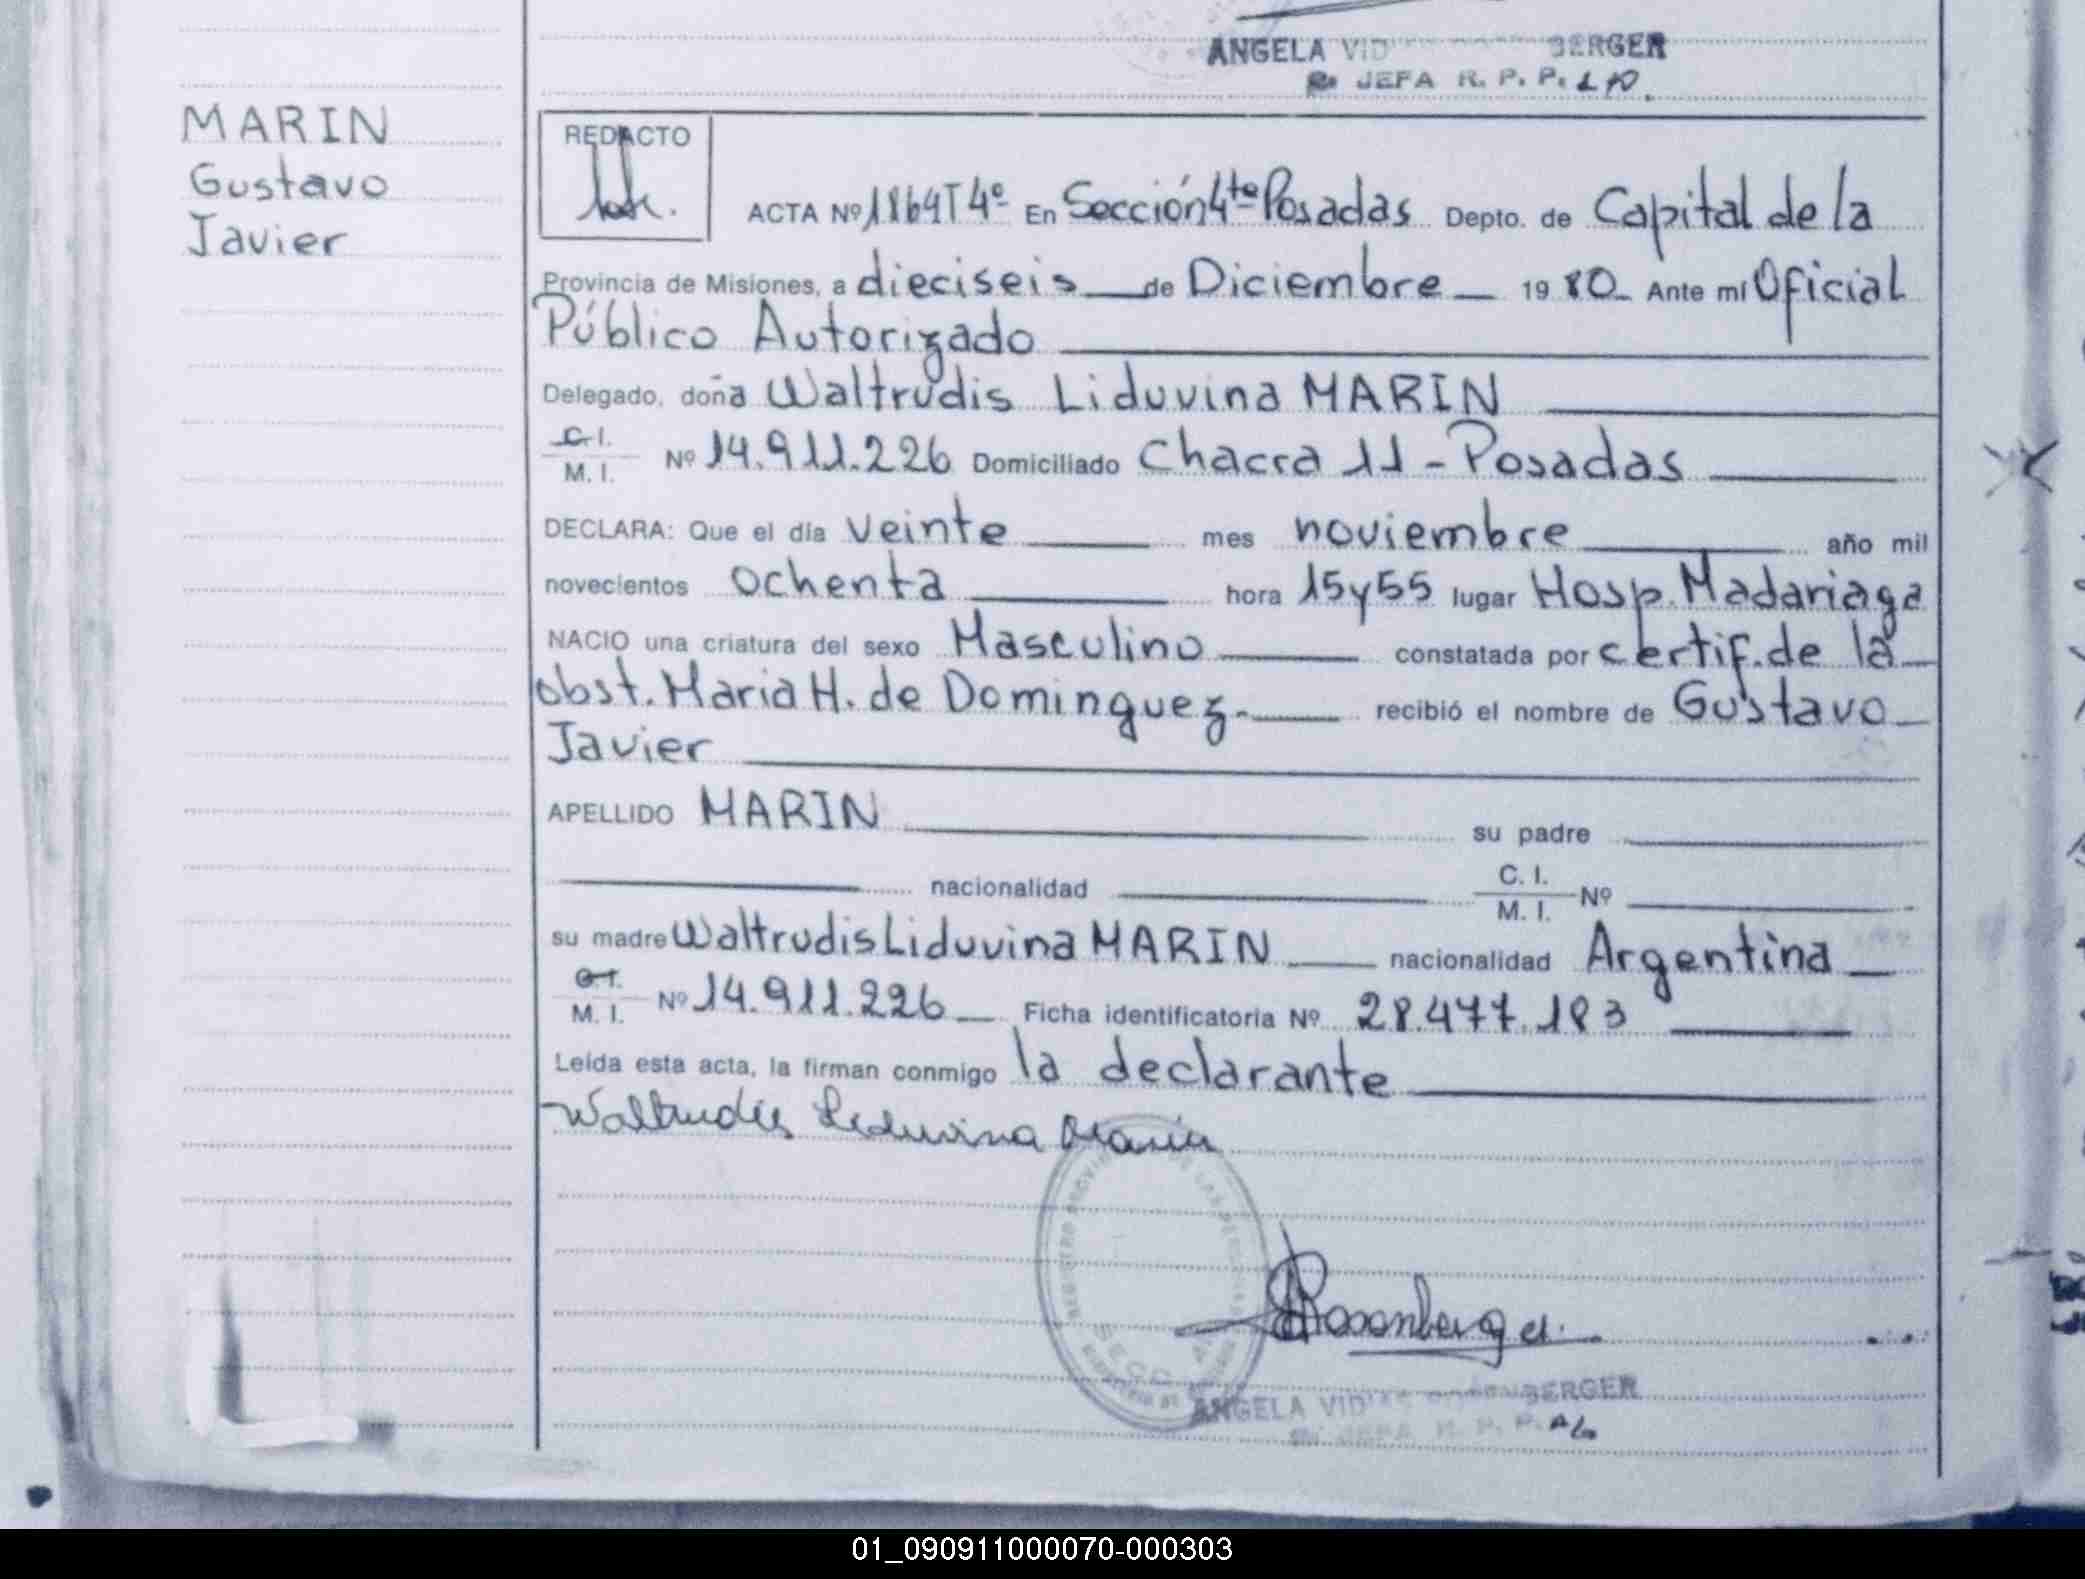 ANGELA VID BERGER
JEFA R. P. P.
MARIN
Gustavo
Javier
REDACTO
ACTA Nº 1864 T 4º En Sección 4ta Posadas Depto. de Capital de la
Provincia de Misiones, a dieciseis de Diciembre 1980 Ante mí Oficial
Público Autorizado
Delegado, doña Waltrudis Liduvina MARIN
C.I.
M. I. Nº 14.911.226 Domiciliado Chacra 11 - Posadas
DECLARA: Que el día veinte mes noviembre año mil
novecientos ochenta hora 15 y 55 lugar Hosp. Madariaga
NACIO una criatura del sexo Masculino constatada por certif. de la
obst. Maria H. de Dominguez. recibió el nombre de Gustavo
Javier
APELLIDO MARIN su padre
nacionalidad C. I.
M. I. Nº
su madre Waltrudis Liduvina MARIN nacionalidad Argentina
C.I.
M. I. Nº 14.911.226 Ficha identificatoria Nº 28.477.183
Leída esta acta, la firman conmigo la declarante
Waltrudis Liduvina Marin
REGISTRO PROVIN DE LAS PERSONAS
Rosenberger
ANGELA VID BERGER
JEFA R. P. P.
01_090911000070-000303